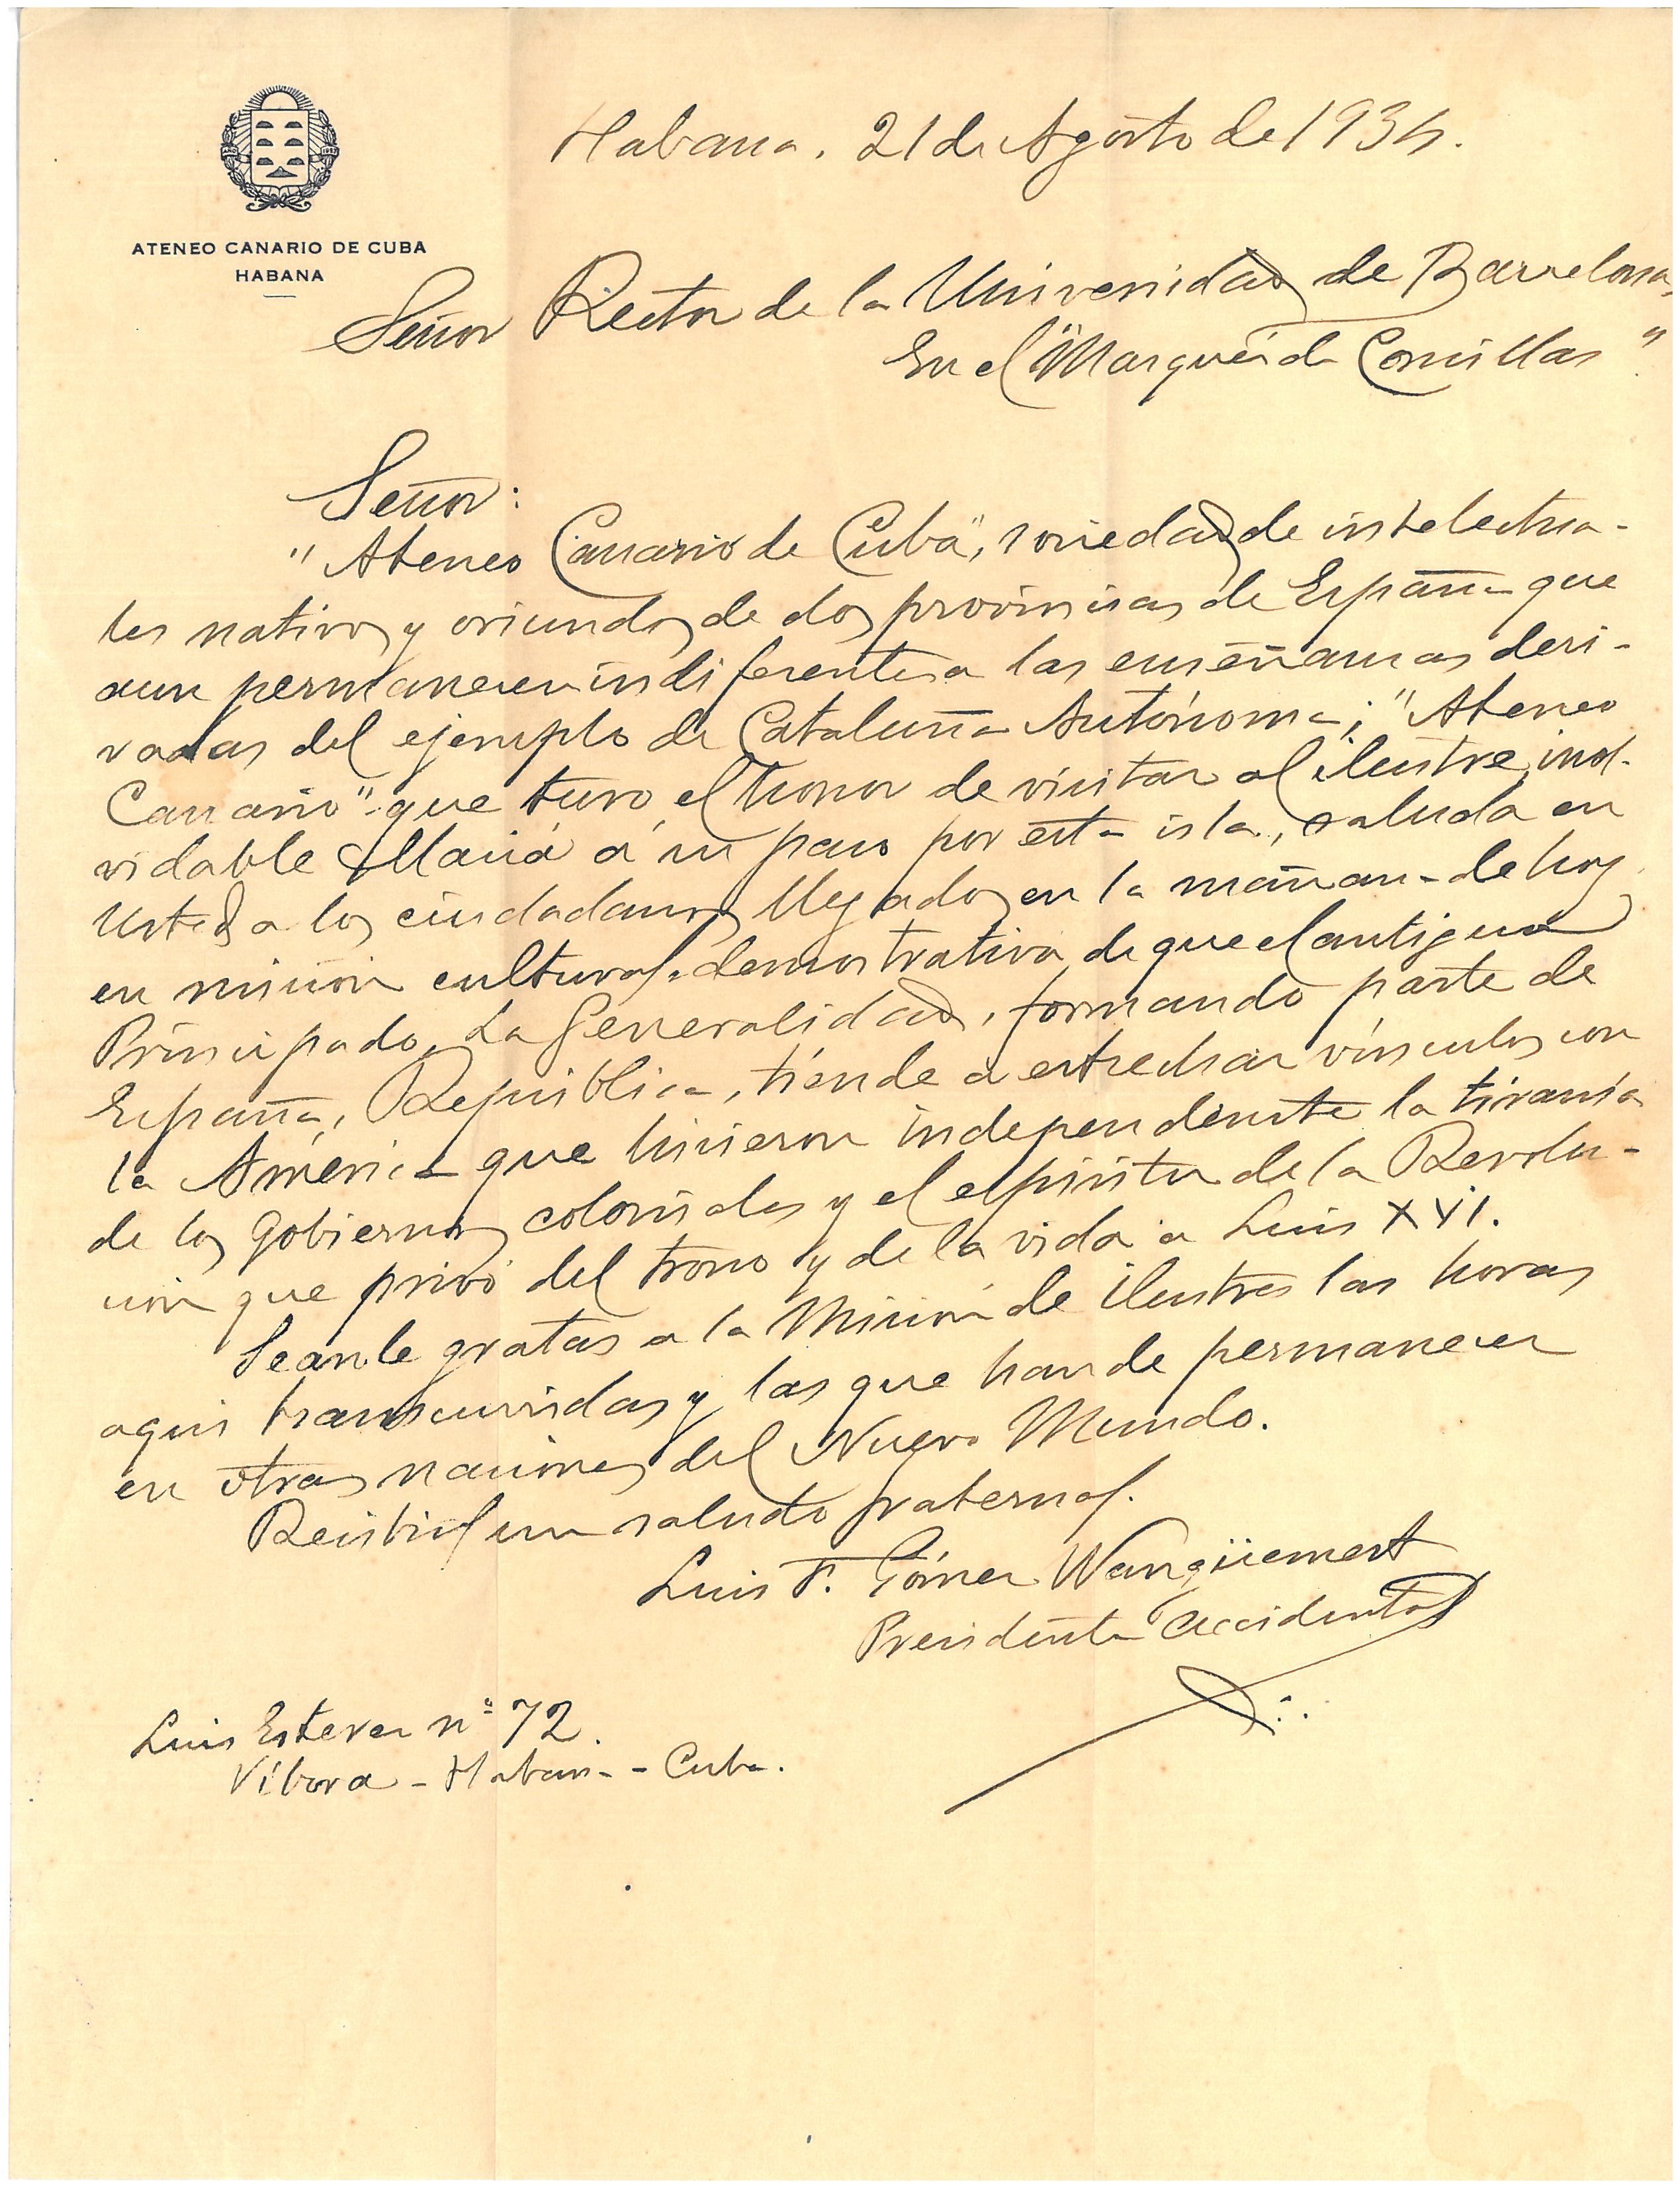 ATENEO CANARIO DE CUBA
HABANA
Habana, 21 de Agosto de 1934.
Señor Rector de la Universidad de Barcelona,
En el "Marqués de Comillas".
Señor:
"Ateneo Canario de Cuba", sociedad de intelectua-
les nativos y oriundos de dos provincias de España que
aun permanecen indiferentes a las enseñanzas deri-
vadas del ejemplo de Cataluña Autónoma; "Ateneo
Canario" que tuvo el honor de visitar al ilustre, inol-
vidable Maciá á su paso por esta isla, saluda en
Usted a los ciudadanos llegados en la mañana de hoy
en misión cultural, demostrativa de que el antiguo
Principado, La Generalidad, formando parte de
España, República, tiende a estrechar vínculos con
la América que hicieron independiente la tiranía
de los Gobiernos coloniales y el espíritu de la Revolu-
ción que privó del trono y de la vida a Luis XVI.
Seanle gratas a la Misión de ilustres las horas
aquí transcurridas y las que han de permanecer
en otras naciones del Nuevo Mundo.
Recibid un saludo fraternal.
Luis F. Gómez Wangüemert
Presidente Accidental
Luis Estevez nº 72.
Víbora - Habana - Cuba.